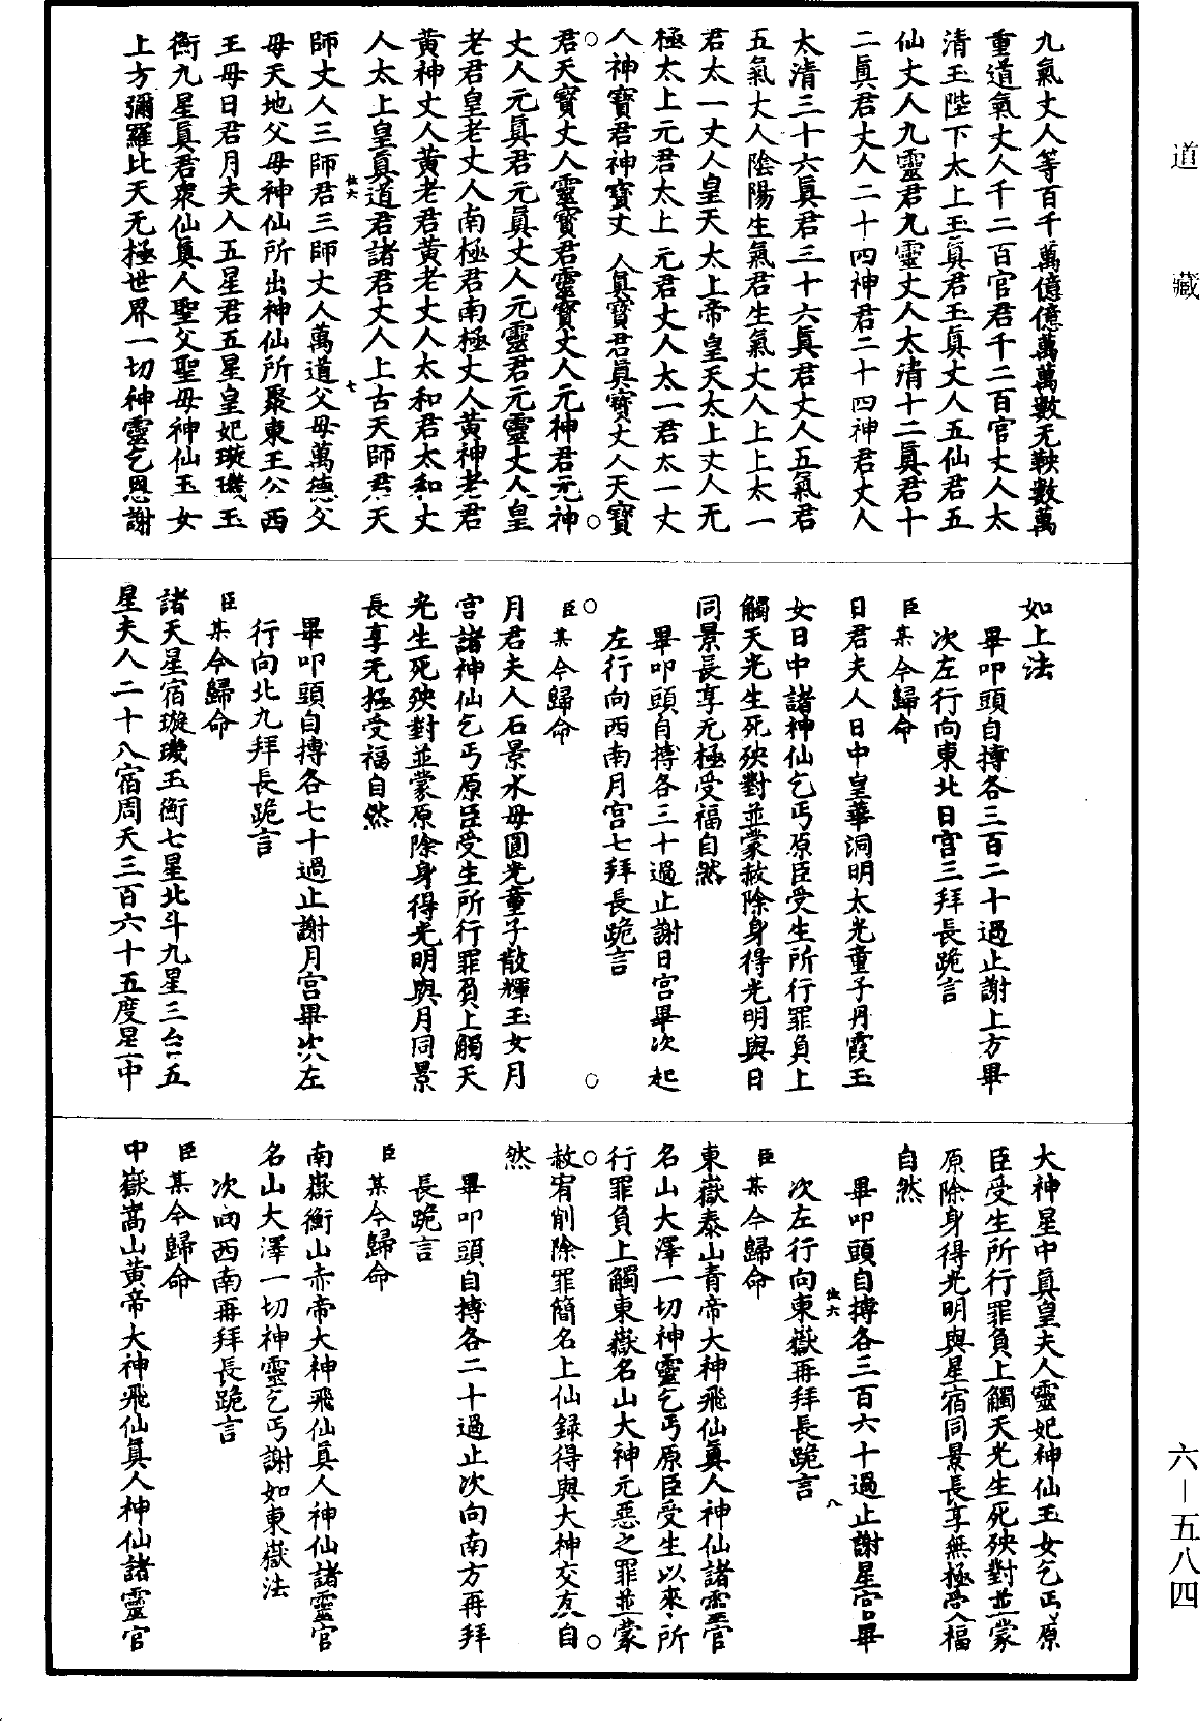 道藏
九氣丈人等百千萬億億萬萬數无鞅數萬
重道氣丈人千二百官君千二百官丈人太
清玉陛下太上玉眞君玉眞丈人五仙君五
仙丈人九靈君九靈丈人太清十二眞君十
二眞君丈人二十四神君二十四神君丈人
太清三十六眞君三十六眞君丈人五氣君
五氣丈人陰陽生氣君生氣丈人上上太一
君太一丈人皇天太上帝皇天太上丈人无
極太上元君太上元君丈人太一君太一丈
人神寶君神寶丈人眞寶君眞寶丈人天寶
君天寶丈人靈寶君靈寶丈人元神君元神
丈人元眞君元眞丈人元靈君元靈丈人皇
老君皇老丈人南極君南極丈人黃神老君
黃神丈人黃老君黃老丈人太和君太和丈
人太上皇眞道君諸君丈人上古天師君天
師丈人三師君三師丈人萬道父母萬德父
母天地父母神仙所出神仙所聚東王公西
王母日君月夫人五星君五星皇妃璇璣玉
衡九星眞君衆仙眞人聖父聖母神仙玉女
上方彌羅比天无極世界一切神靈乞恩謝
如上法
畢叩頭自搏各三百二十過止謝上方畢
次左行向東北日宮三拜長跪言
臣某今歸命
日君夫人日中皇華洞明太光童子丹霞玉
女日中諸神仙乞丐原臣受生所行罪負上
觸天光生死殃對並蒙赦除身得光明與日
同景長享无極受福自然
畢叩頭自搏各三十過止謝日宮畢次起
左行向西南月宮七拜長跪言
臣某今歸命
月君夫人石景水母圓光童子散輝玉女月
宮諸神仙乞丐原臣受生所行罪負上觸天
光生死殃對並蒙原除身得光明與月同景
長享无極受福自然
畢叩頭自搏各七十過止謝月宮畢次左
行向北九拜長跪言
臣某今歸命
諸天星宿璇璣玉衡七星北斗九星三台五
星夫人二十八宿周天三百六十五度星中
大神星中眞皇夫人靈妃神仙玉女乞丐原
臣受生所行罪負上觸天光生死殃對並蒙
原除身得光明與星宿同景長享無極受福
自然
畢叩頭自搏各三百六十過止謝星宮畢
次左行向東嶽再拜長跪言
臣某今歸命
東嶽泰山青帝大神飛仙眞人神仙諸靈官
名山大澤一切神靈乞丐原臣受生以來所
行罪負上觸東嶽名山大神元惡之罪並蒙
赦宥削除罪簡名上仙録得與大神交友自
然
畢叩頭自搏各二十過止次向南方再拜
長跪言
臣某今歸命
南嶽衡山赤帝大神飛仙眞人神仙諸靈官
名山大澤一切神靈乞丐謝如東嶽法
次向西南再拜長跪言
臣某今歸命
中嶽嵩山黃帝大神飛仙眞人神仙諸靈官
六—五八四